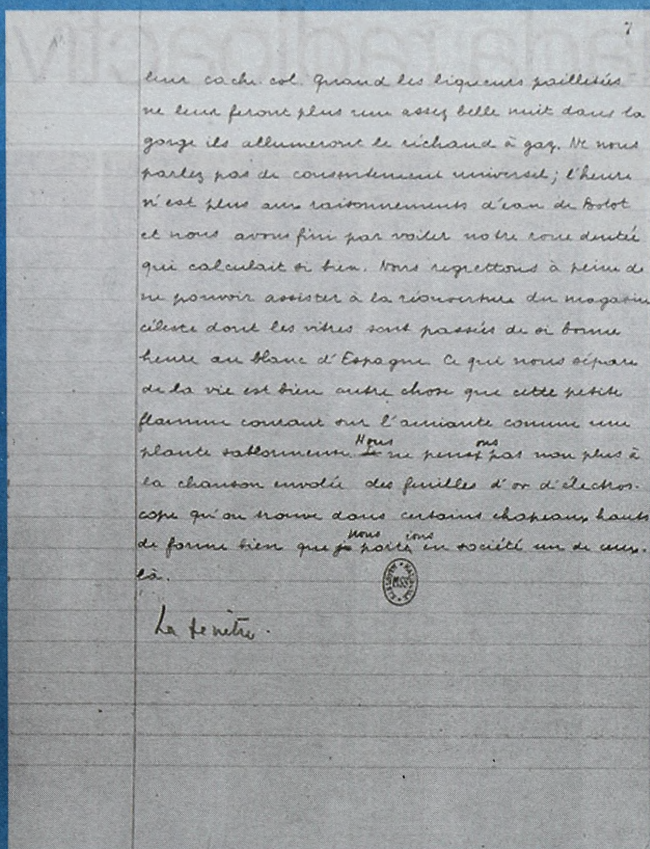 7
leur cache-col. Quand les liqueurs pailletées
ne leur feront plus une assez belle nuit dans la
gorge ils allumeront le réchaud à gaz. Ne nous
parlez pas de consentement universel; l'heure
n'est plus aux raisonnements d'eau de Botot
et nous avons fini par voiler notre roue dentée
qui calculait si bien. Nous regrettons à peine de
ne pouvoir assister à la réouverture du magasin
céleste dont les vitres sont passées de si bonne
heure au blanc d'Espagne. Ce qui nous sépare
de la vie est bien autre chose que cette petite
flamme courant sur l'amiante comme une
plante sablonneuse. Nous ne pensons pas non plus à
la chanson envolée des feuilles d'or d'électros-
cope qu'on trouve dans certains chapeaux hauts
de forme bien que nous portions en société un de ceux-
là.
MSS
La fenêtre.